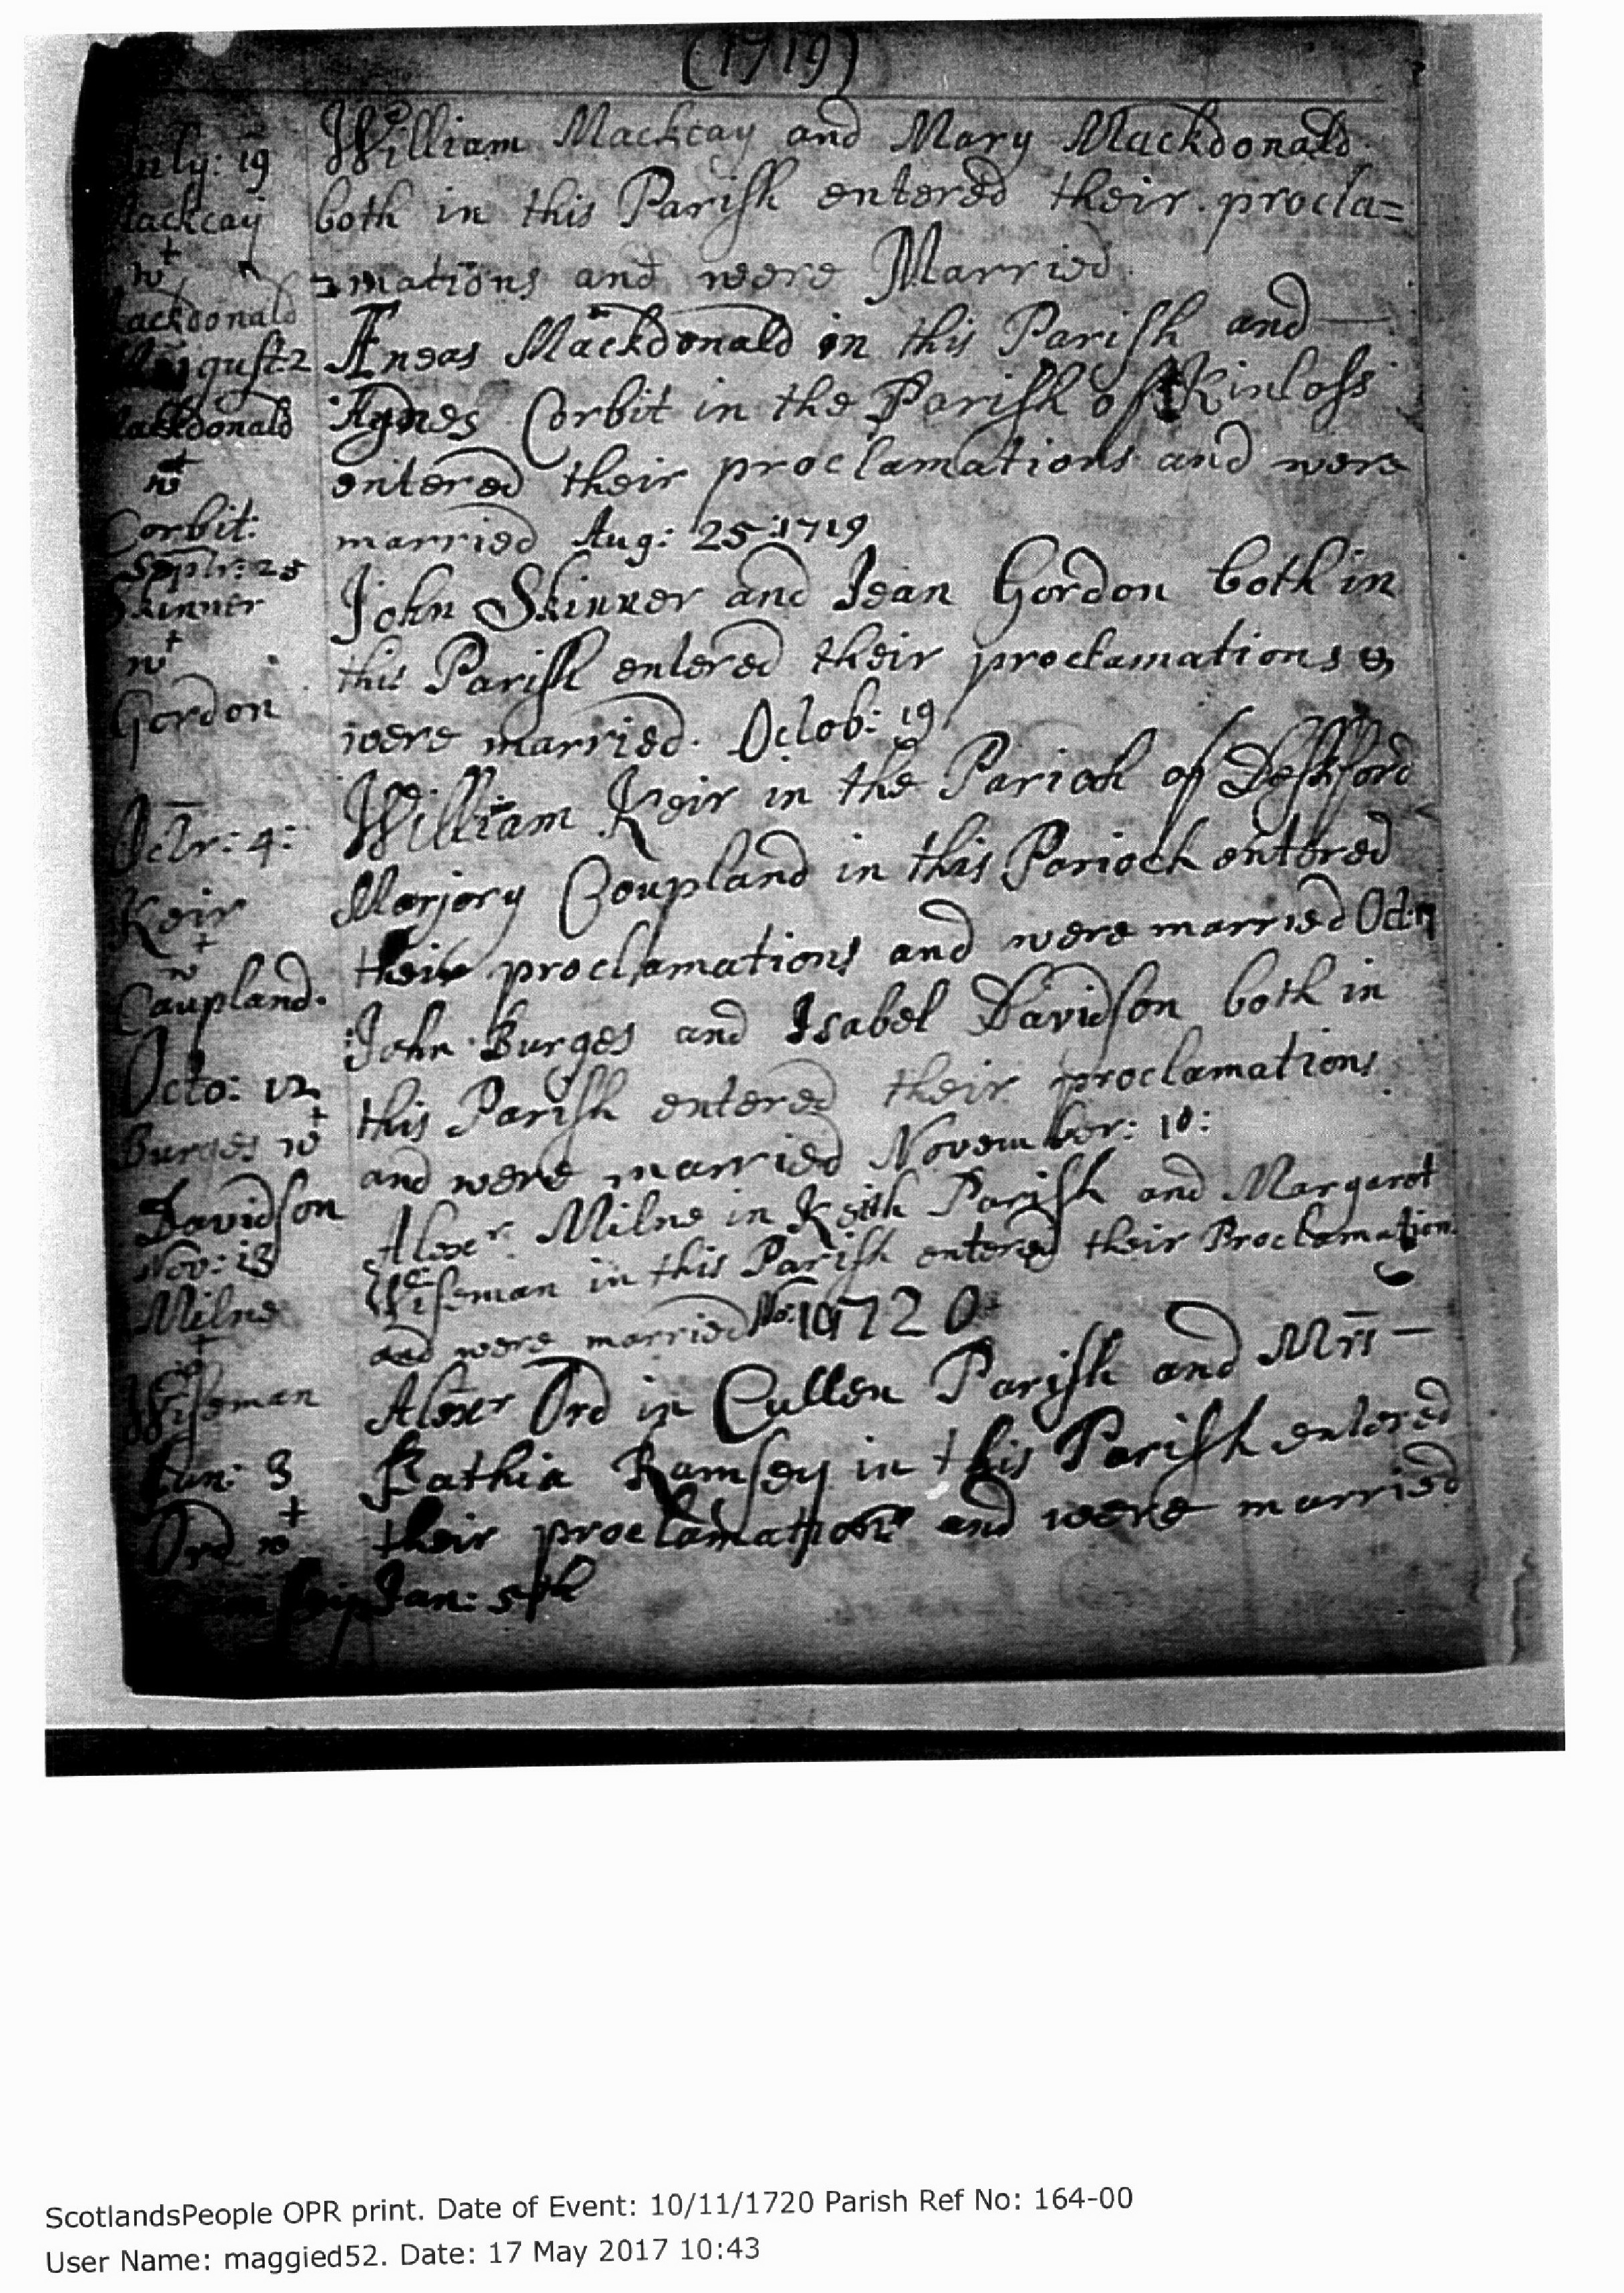 (1719)
July: 19
William Mackcay and Mary Mackdonald
Mackcay
both in this Parish entered their procla=
wt
=mations and were Married
Mackdonald
August: 2
Æneas Mackdonald in this Parish and —
Mackdonald
Agnes Corbit in the Parish of Kinloss
wt
entered their proclamations and were
Corbit:
married Aug: 25: 1719
Septr: 25
Skinner
John Skinner and Jean Gordon both in
wt
this Parish entered their proclamations &
Gordon
were married. Octob: 19
Octr: 4:
William Keir in the Parioch of Deskford
Keir
Marjory Coupland in this Parioch entered
wt
their proclamations and were married Oct:
Caupland.
John Burges and Isabel Davidson both in
Octo: 12
this Parish entered their proclamations
Burges wt
and were married November: 10:
Davidson
Alexr. Milne in Keith Parish and Margaret
Nov: 13
Wiseman in this Parish entered their Proclamation
Milne
and were married No: 10
1720
wt
Wiseman
Alexr Ord in Cullen Parish and Mrs —
Jan: 3
Kathia Ramsey in this Parish entered
Ord wt
their proclamations and were married
Jan: 5th
ScotlandsPeople OPR print. Date of Event: 10/11/1720 Parish Ref No: 164-00
User Name: maggied52. Date: 17 May 2017 10:43